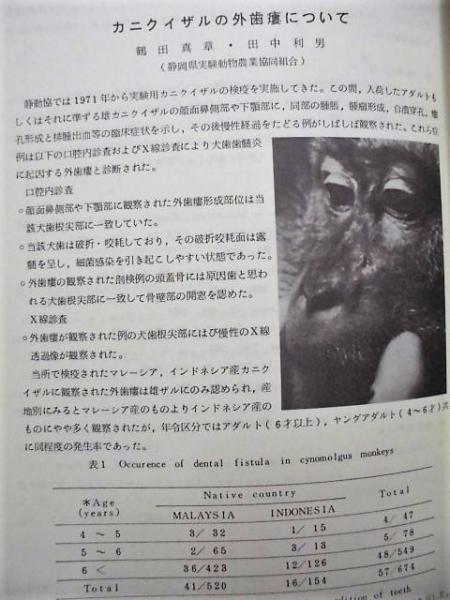 カニクイザルの外歯瘻について
鶴田真章・田中利男
(静岡県実験動物農業協同組合)
静動協では1971年から実験用カニクイザルの検疫を実施してきた。この間,入荷したアダルトも
しくはそれに準ずる雄カニクイザルの顔面鼻側部や下顎部に,同部の腫脹,腫瘤形成,自潰穿孔,瘻
孔形成と排膿出血等の臨床症状を示し,その後慢性経過をたどる例がしばしば観察された。これら症
例は以下の口腔内診査およびX線診査により犬歯歯髄炎
に起因する外歯瘻と診断された。
口腔内診査
○顔面鼻側部や下顎部に観察された外歯瘻形成部位は当
該犬歯根尖部に一致していた。
○当該犬歯は破折・咬耗しており,その破折咬耗面は露
髄を呈し,細菌感染を引き起こしやすい状態であった。
○外歯瘻の観察された剖検例の頭蓋骨には原因歯と思わ
れる犬歯根尖部に一致して骨壁部の開窓を認めた。
X線診査
○外歯瘻が観察された例の犬歯根尖部にはび慢性のX線
透過像が観察された。
当所で検疫されたマレーシア,インドネシア産カニク
イザルに観察された外歯瘻は雄ザルにのみ認められ,産
地別にみるとマレーシア産のものよりインドネシア産の
ものにやや多く観察されたが,年令区分ではアダルト(6才以上),ヤングアダルト(4~6才)共
に同程度の発生率であった。
表1 Occurence of dental fistula in cynomolgus monkeys
*Age (years) Native country Total
MALAYSIA INDONESIA
4 ~ 5 3/ 32 1/ 15 4/ 47
5 ~ 6 2/ 65 3/ 13 5/ 78
6 < 36/423 12/126 48/549
Total 41/520 16/154 57/674
of teeth